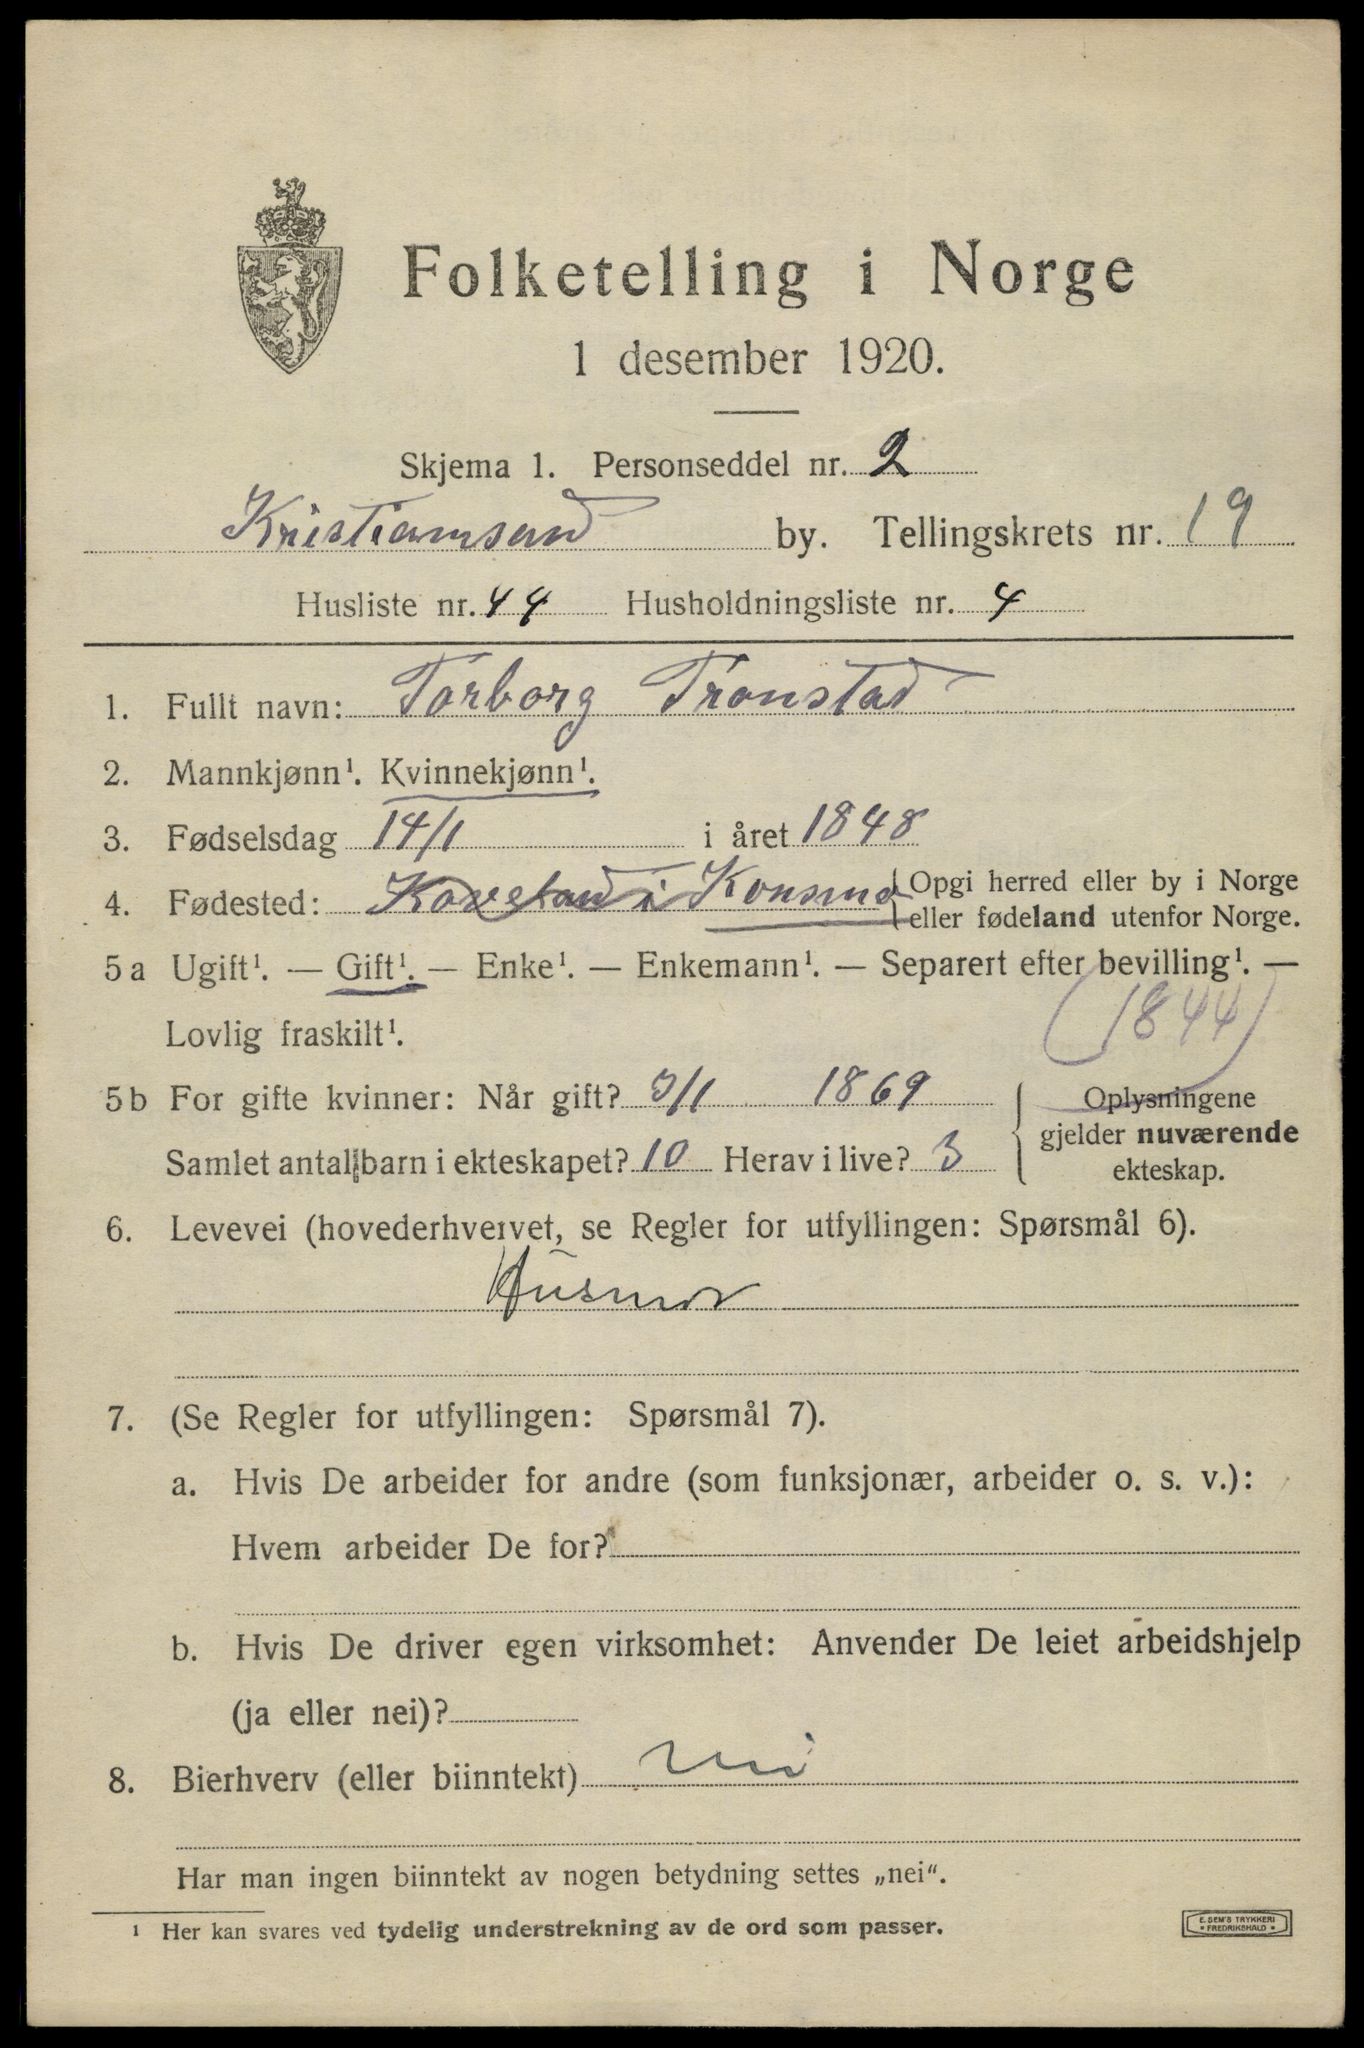 Folketelling i Norge
1 desember 1920.
Skjema 1. Personseddel nr. 2
Kristiansand by. Tellingskrets nr. 19
Husliste nr. 44 Husholdningsliste nr. 4
1. Fullt navn: Torborg Tronstad
2. Mannkjønn¹. Kvinnekjønn¹.
3. Fødselsdag 14/1 i året 1848
4. Fødested: i Konsmo { Opgi herred eller by i Norge
eller fødeland utenfor Norge.
5 a Ugift¹. — Gift¹. — Enke¹. — Enkemann¹. — Separert efter bevilling¹. —
Lovlig fraskilt¹. (1844)
5 b For gifte kvinner: Når gift? 3/1 1869
Samlet antal barn i ekteskapet? 10 Herav i live? 3
{ Oplysningene
gjelder nuværende
ekteskap.
6. Levevei (hovederhvervet, se Regler for utfyllingen: Spørsmål 6).
Husmor
7. (Se Regler for utfyllingen: Spørsmål 7).
a. Hvis De arbeider for andre (som funksjonær, arbeider o. s. v.):
Hvem arbeider De for?
b. Hvis De driver egen virksomhet: Anvender De leiet arbeidshjelp
(ja eller nei)?
8. Bierhverv (eller biinntekt) nei
Har man ingen biinntekt av nogen betydning settes „nei“.
¹ Her kan svares ved tydelig understrekning av de ord som passer.
E. SEM'S TRYKKERI
* FREDRIKSHALD *